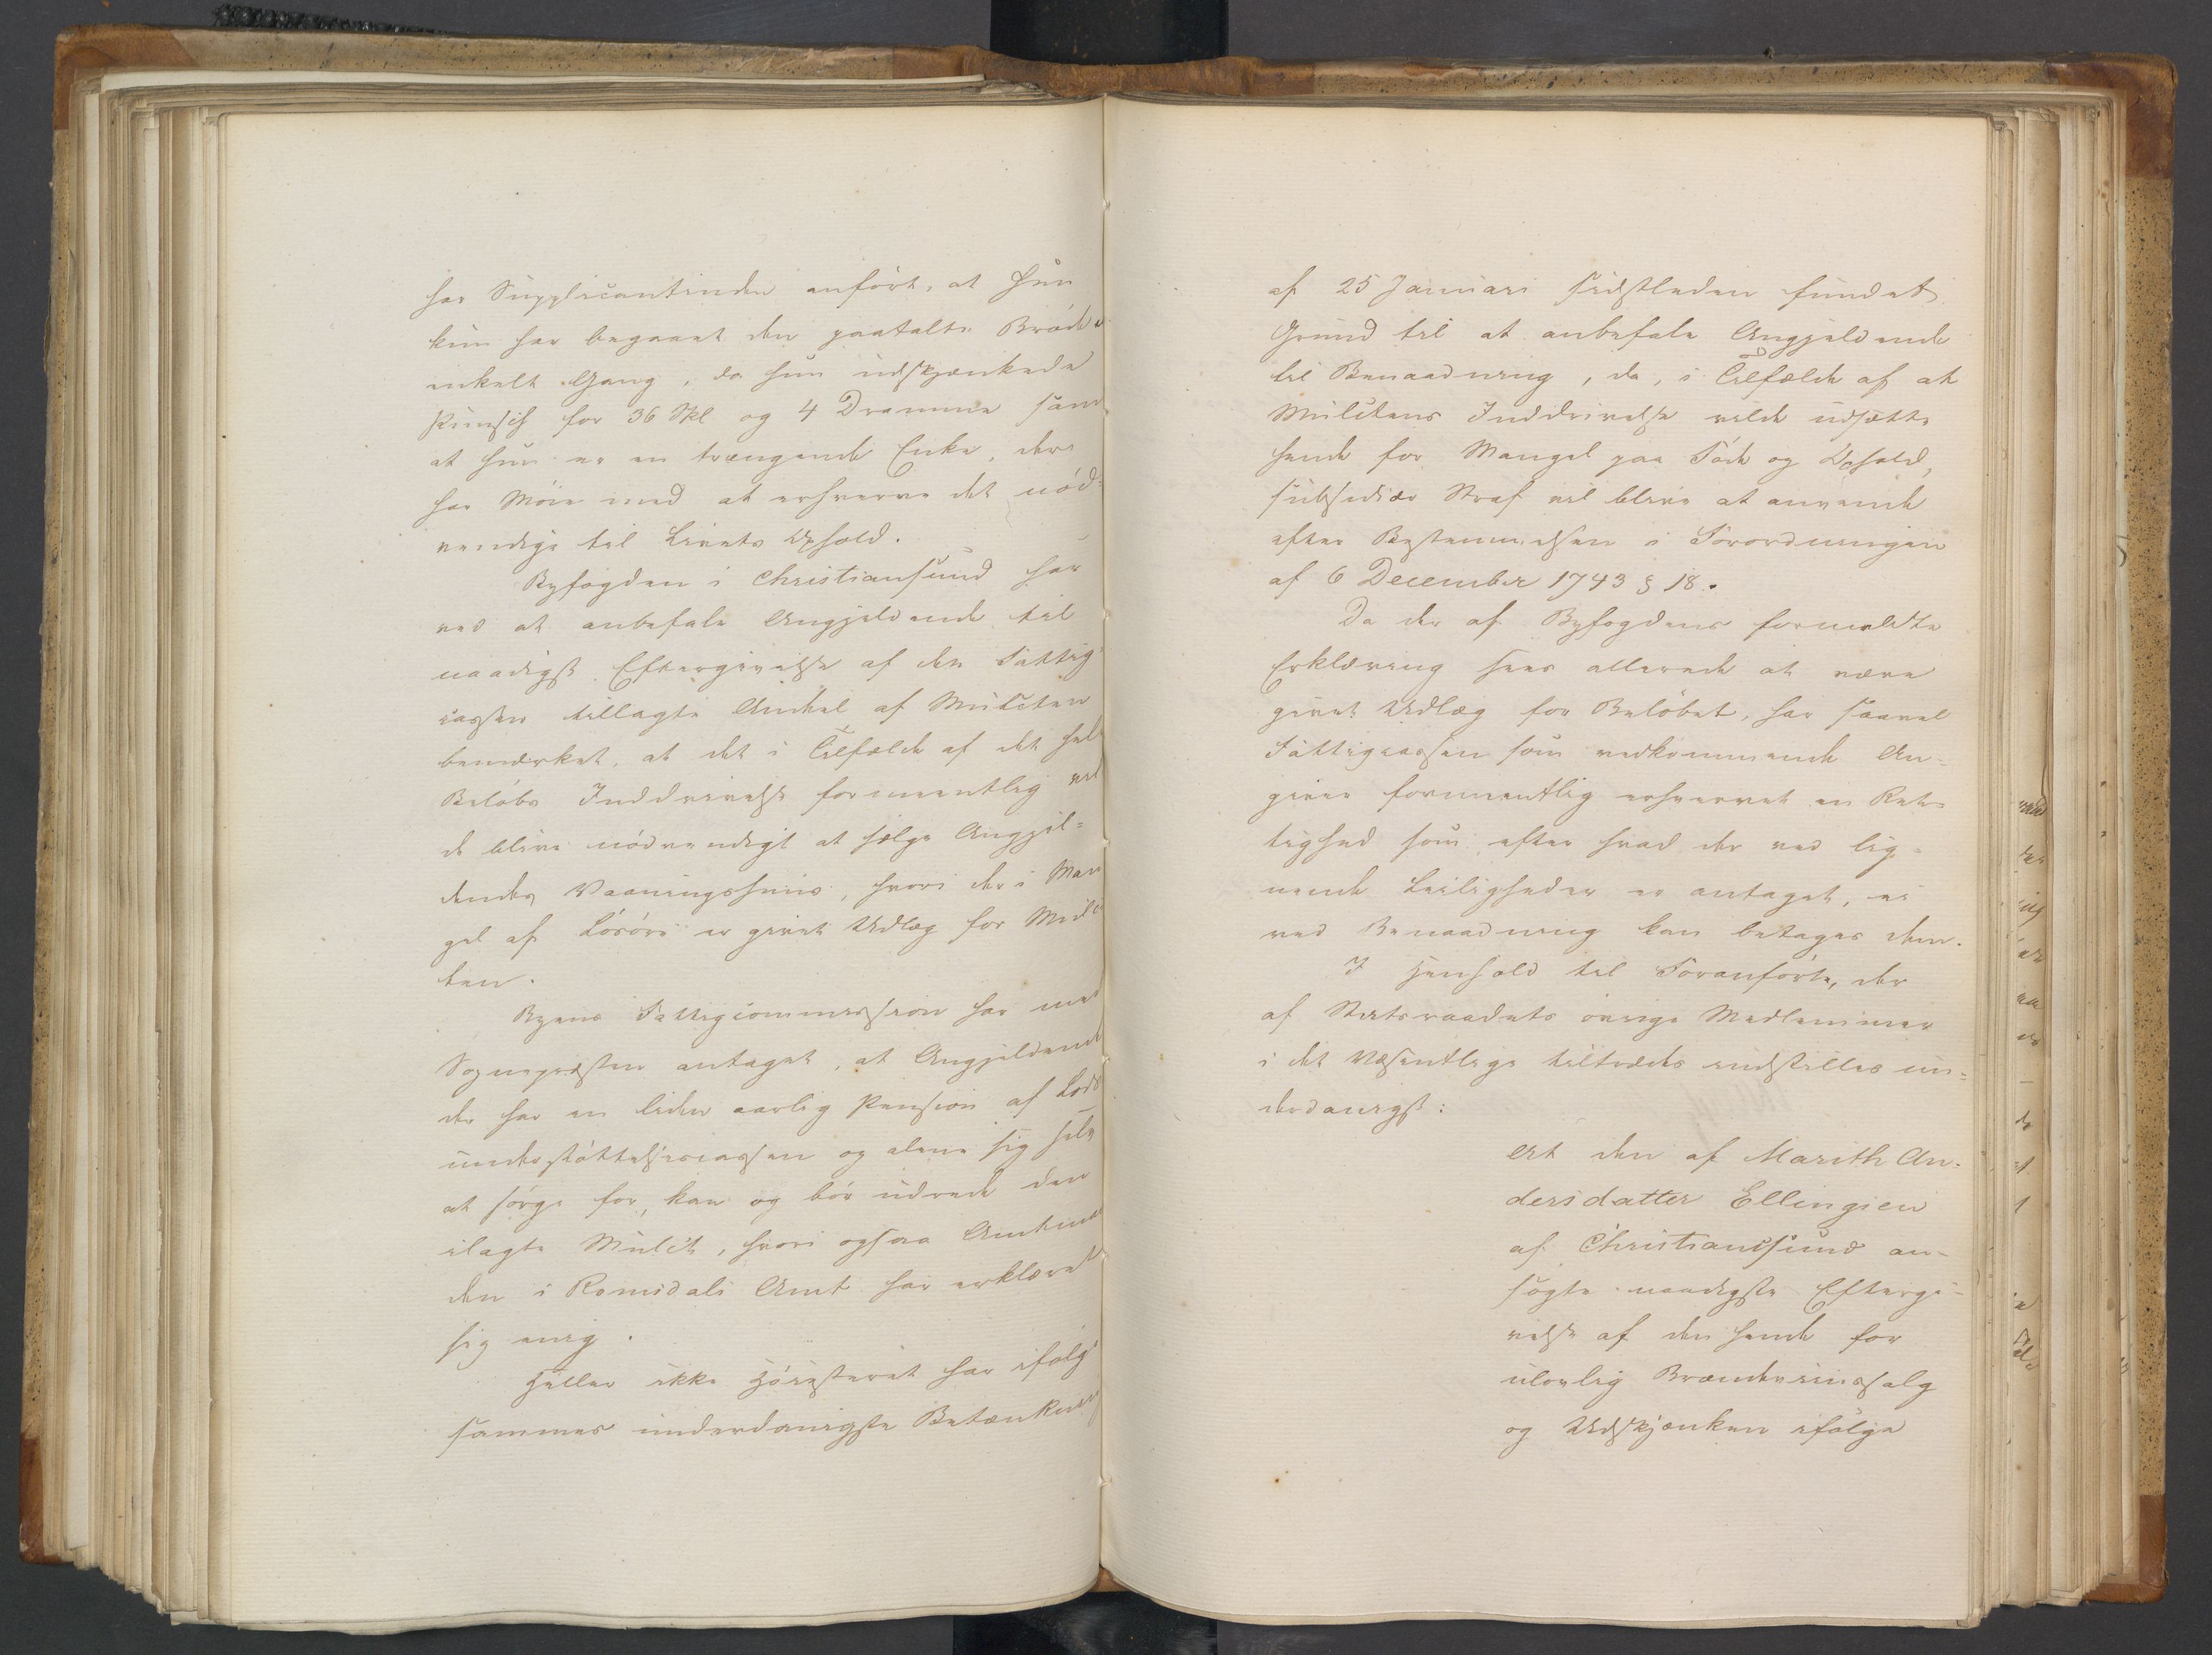 har Supplicantinden anført, at hun
kun har begaaet den paatalte Brøde
enkelt Gang, da hun udskjænkede
Punsch for 36 Skl og 4 Dramme samt
at hun er en trængende Enke, der
har Møie med at erhverve det nød-
vendige til Livets Ophold.
Byfogden i Christiansund har
ved at anbefale Angjeldende til
naadigst Eftergivelse af den Fattig-
cassen tillagte Andel af Mulcten
bemærket, at det i Tilfælde af det hele
Beløbs Inddrivelse formeentlig vil
de blive nødvendigt at sælge Angjel-
dendes Vaaningshuus, hvori der i Man
gel af Løsøre er givet Udlæg for Mulc
ten.
Byens Fattigcommission har med
Sognepræsten antaget, at Angjeldende
der har en liden aarlig Pension af Lods
understøttelsescassen og alene sig selv
at sørge for, kan og bør udrede den
ilagte Mulct, hvori ogsaa Amtman
den i Romsdals Amt har erklæret
sig enig.
Heller ikke Høiesteret har ifølge
sammes underdanigste Betænkning
af 25 Januari sidstleden fundet
Grund til at anbefale Angjeldende
til Benaadning, da, i Tilfælde af at
Mulctens Inddrivelse vilde udsætte
hende for Mangel paa Føde og Ophold,
subsidiær Straf vil blive at anvende
efter Bestemmelsen i Forordningen
af 6 December 1743 § 18.
Da der af Byfogdens formeldte
Erklæring sees allerede at være
givet Udlæg for Beløbet, har saavel
Fattigcassen som vedkommende An-
giver formeentlig erhvervet en Ret-
tighed som efter hvad der ved lig-
nende Leiligheder er antaget, ei
ved Benaadning kan betages dem.
I Henhold til Foranførte, der
af Statsraadets øvrige Medlemmer
i det Væsentlige tiltrædes indstilles un-
derdanigst:
At den af Marith An-
dersdatter Ellingsen
af Christianssund an-
søgte naadigste Eftergi-
velse af den hende for
ulovlig Brændeviinssalg
og Udskjænken ifølge